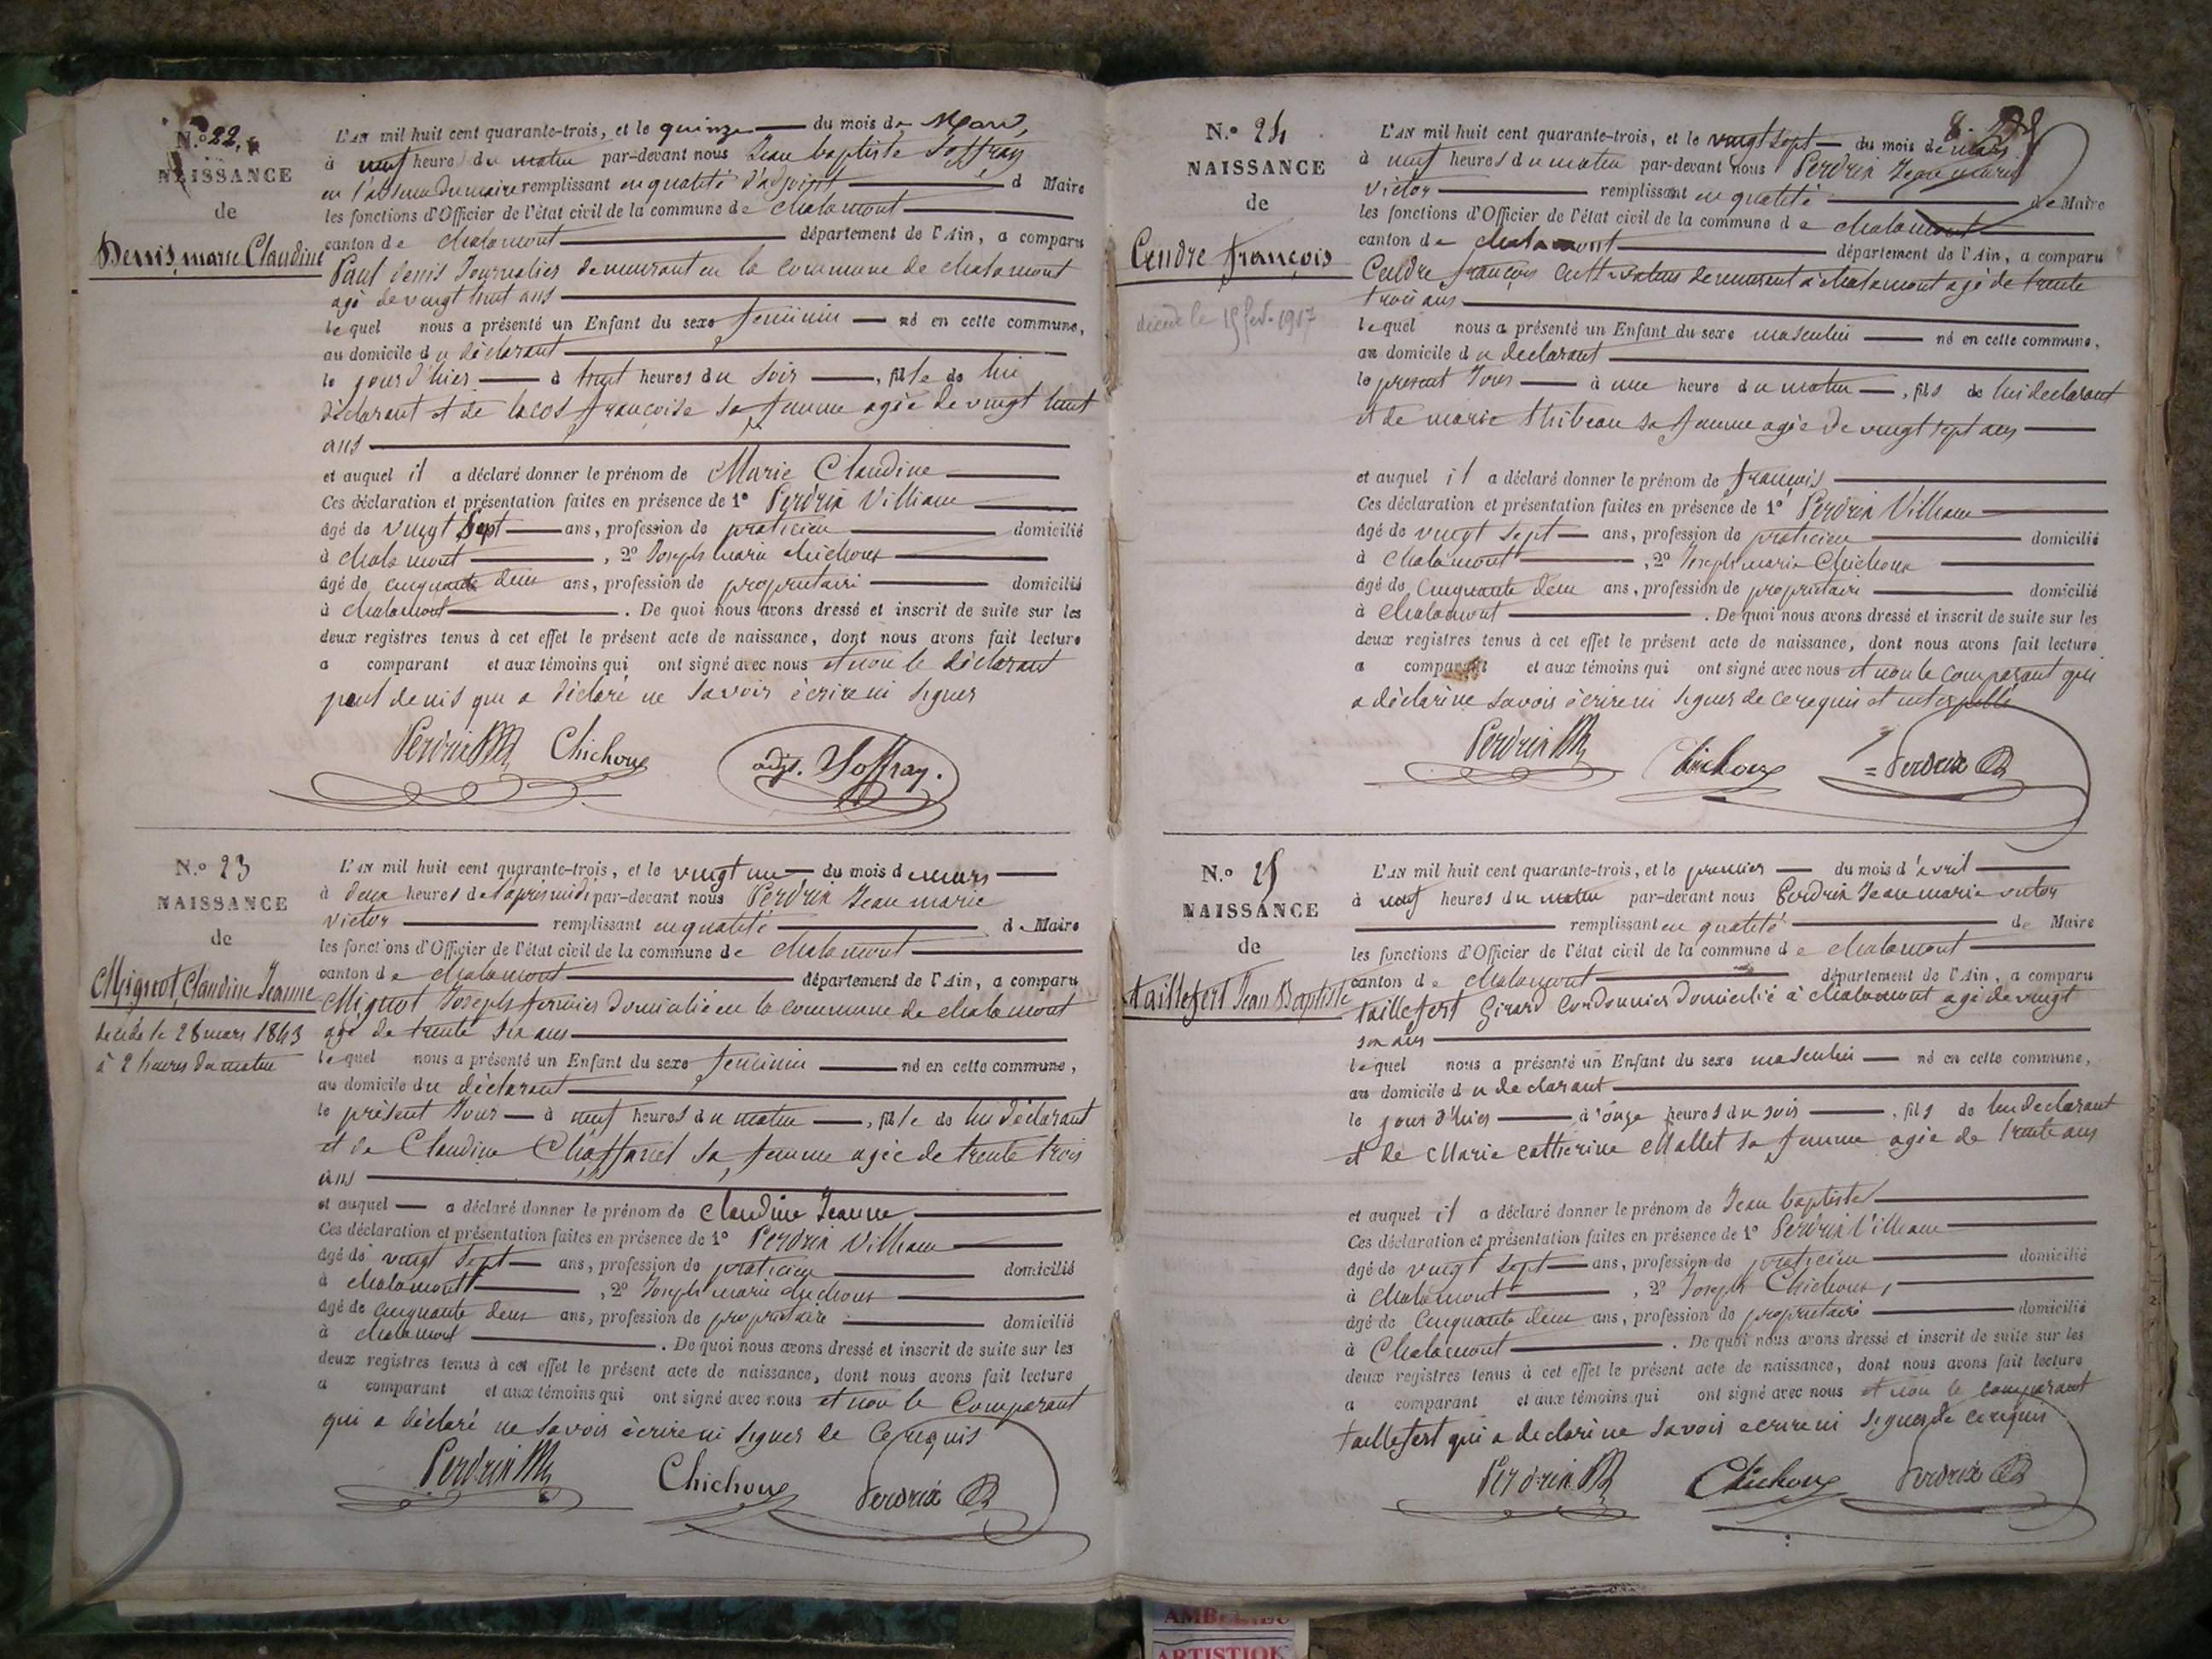 N.º 22.
NAISSANCE
de
Denis, marie Claudine
L'AN mil huit cent quarante-trois, et le quinze du mois de Mars,
à neuf heures du matin par-devant nous Jean baptiste Joffray
en l'absence du maire remplissant en qualité d'adjoint d Maire
les fonctions d'Officier de l'état civil de la commune de chalamont
canton de chalamont département de l'Ain, a comparu
Paul Denis Journalier demeurant en la commune de chalamont
agé de vingt huit ans
lequel nous a présenté un Enfant du sexe feminin né en cette commune,
au domicile du déclarant
le jour d'hier à huit heures du soir, fille de lui
déclarant et de lacos françoise sa femme agée de vingt huit
ans
et auquel il a déclaré donner le prénom de Marie Claudine
Ces déclaration et présentation faites en présence de 1º Perdrix Villiame
âgé de vingt sept ans, profession de praticien domicilié
à chalamont, 2º Joseph marie chichoux
âgé de cinquante deux ans, profession de propriétaire domicilié
à chalamont. De quoi nous avons dressé et inscrit de suite sur les
deux registres tenus à cet effet le présent acte de naissance, dont nous avons fait lecture
a comparant et aux témoins qui ont signé avec nous et non le déclarant
paul denis qui a déclaré ne savoir écrire ni signer
Perdrix Chichoux adjt. Joffray.
N.º 23
NAISSANCE
de
Mignot, Claudine Jeanne
décédé le 28 mars 1843
à 2 heures du matin
L'AN mil huit cent quarante-trois, et le vingt un du mois de mars
à deux heures de l'après midi par-devant nous Perdrix Jean marie
victor remplissant en qualité de Maire
les fonctions d'Officier de l'état civil de la commune de chalamont
canton de chalamont département de l'Ain, a comparu
Mignot Joseph fermier domicilié en la commune de chalamont
agé de trente six ans
lequel nous a présenté un Enfant du sexe feminin né en cette commune,
au domicile du déclarant
le présent Jour à neuf heures du matin, fille de lui déclarant
et de Claudine Chaffariet sa femme agée de trente trois
ans
et auquel a déclaré donner le prénom de Claudine Jeanne
Ces déclaration et présentation faites en présence de 1º Perdrix Villiame
âgé de vingt sept ans, profession de praticien domicilié
à chalamont, 2º Joseph marie chichoux
âgé de cinquante deux ans, profession de propriétaire domicilié
à chalamont. De quoi nous avons dressé et inscrit de suite sur les
deux registres tenus à cet effet le présent acte de naissance, dont nous avons fait lecture
a comparant et aux témoins qui ont signé avec nous et non le Comparant
qui a déclaré ne savoir écrire ni signer de ce requis
Perdrix Chichoux Perdrix
N.º 24
NAISSANCE
de
Cendre françois
décédé le 15 fev. 1917
L'AN mil huit cent quarante-trois, et le vingt sept du mois de mars
à neuf heures du matin par-devant nous Perdrix Jean marie
victor remplissant en qualité de Maire
les fonctions d'Officier de l'état civil de la commune de chalamont
canton de chalamont département de l'Ain, a comparu
Cendre françois cultivateur demeurant à chalamont agé de trente
trois ans
lequel nous a présenté un Enfant du sexe masculin né en cette commune,
au domicile du déclarant
le présent Jour à une heure du matin, fils de lui déclarant
et de marie thibeau sa femme agée de vingt sept ans
et auquel il a déclaré donner le prénom de françois
Ces déclaration et présentation faites en présence de 1º Perdrix Villiame
âgé de vingt sept ans, profession de praticien domicilié
à chalamont, 2º Joseph marie Chichoux
âgé de Cinquante deux ans, profession de propriétaire domicilié
à chalamont. De quoi nous avons dressé et inscrit de suite sur les
deux registres tenus à cet effet le présent acte de naissance, dont nous avons fait lecture
a comparant et aux témoins qui ont signé avec nous et non le comparant qui
a déclaré ne savoir écrire ni signer de ce requis et interpellé
Perdrix Chichoux Perdrix
N.º 25
NAISSANCE
de
taillefert Jean Baptiste
L'AN mil huit cent quarante-trois, et le premier du mois d'avril
à neuf heures du matin par-devant nous Perdrix Jean marie victor
remplissant en qualité de Maire
les fonctions d'Officier de l'état civil de la commune de chalamont
canton de chalamont département de l'Ain, a comparu
taillefert Girard Cordonnier domicilié à chalamont agé de vingt
six ans
lequel nous a présenté un Enfant du sexe masculin né en cette commune,
au domicile du déclarant
le jour d'hier à onze heures du soir, fils de lui déclarant
et de Marie catherine Mallet sa femme agée de trente ans
et auquel il a déclaré donner le prénom de Jean baptiste
Ces déclaration et présentation faites en présence de 1º Perdrix Villiame
âgé de vingt sept ans, profession de praticien domicilié
à chalamont, 2º Joseph Chichoux,
âgé de Cinquante deux ans, profession de propriétaire domicilié
à Chalamont. De quoi nous avons dressé et inscrit de suite sur les
deux registres tenus à cet effet le présent acte de naissance, dont nous avons fait lecture
a comparant et aux témoins qui ont signé avec nous et non le comparant
taillefert qui a déclaré ne savoir écrire ni signer de ce requis
Perdrix Chichoux Perdrix